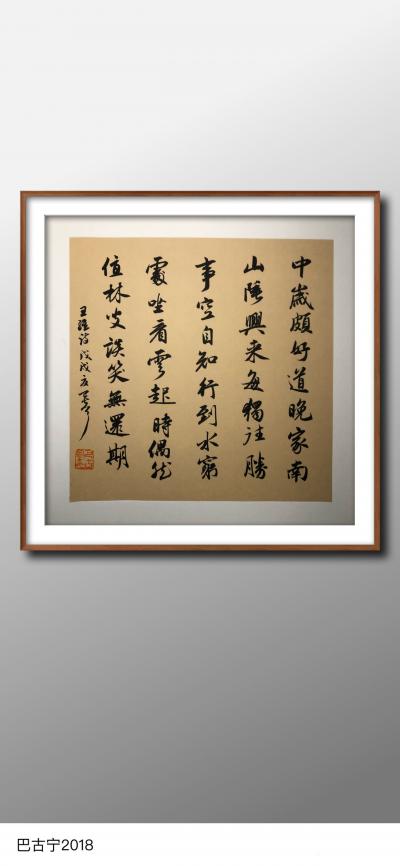 中歲頗好道晚家南
山陲興来每獨往勝
事空自知行到水窮
處坐看雲起時偶然
值林叟談笑無還期
王維詩 戊戌夏
巴古宁2018